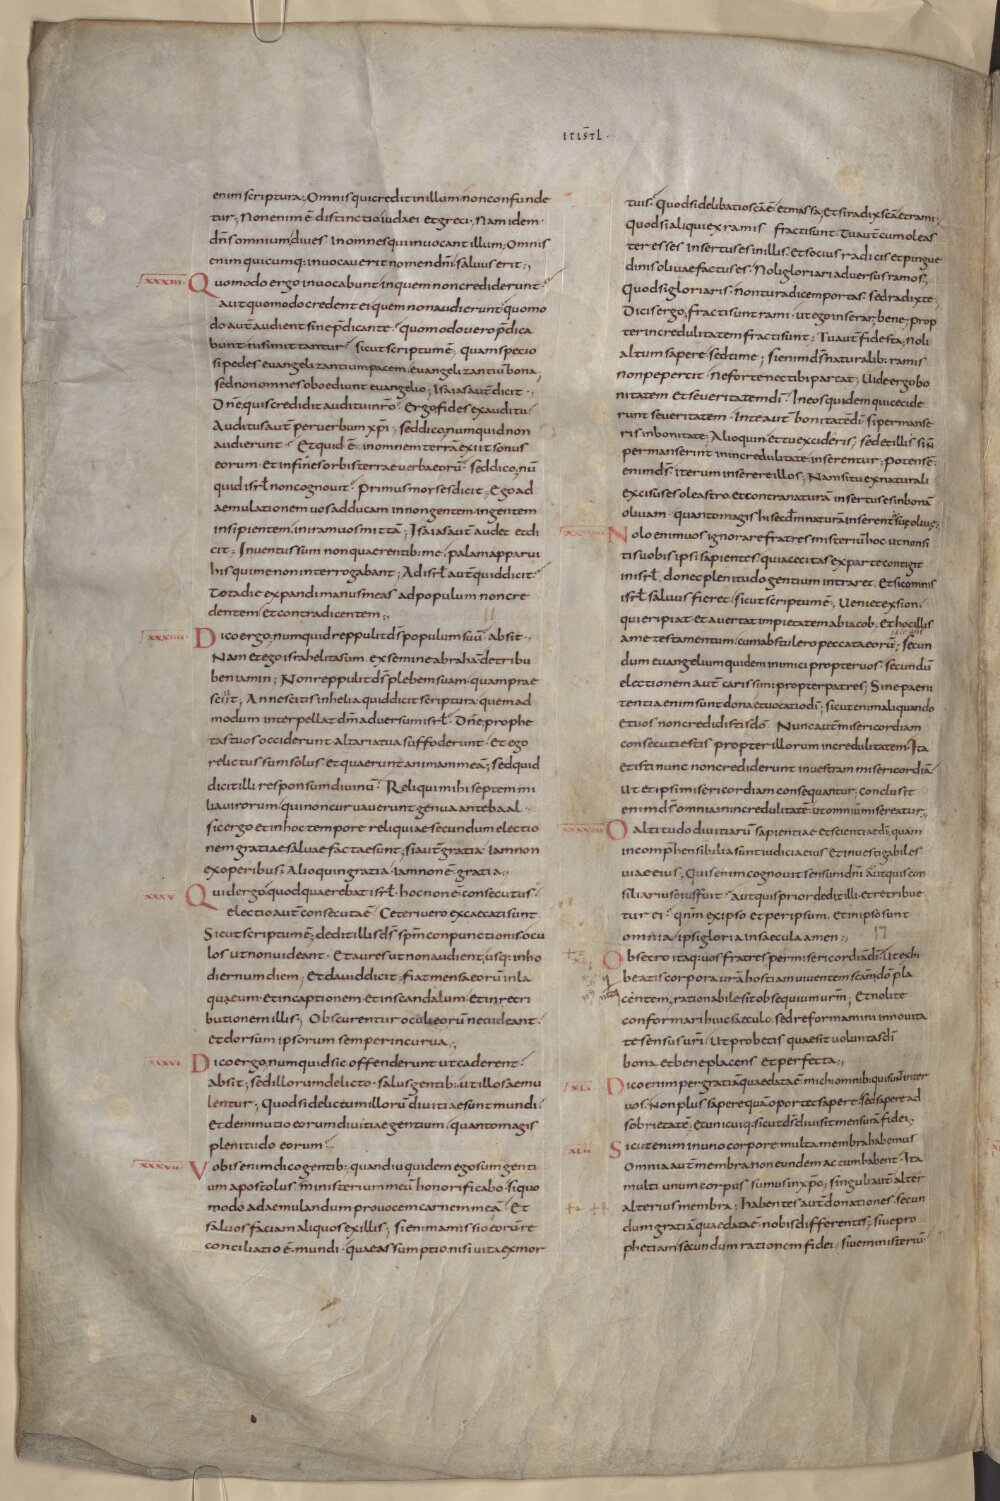 EPISTL·
enim scriptura; Omnis qui credit in illum non confunde
tur; Non enim ē distinctio iudaei et greci· Nam idem·
dn̄s omnium, diues in omnes qui inuocant illum; Omnis
enim quicumq: inuocauerit nomen dn̄i saluus erit;,
XXXIII Quomodo ergo inuocabunt in quem non crediderunt?
aut quomodo credent ei quem non audierunt? quomo
do aut̄ audient sine p̄dicante? quomodo uero p̄dica
bunt nisi mittantur? sicut scriptum ē; quam specio
si pedes euangelizantium pacem, euangelizantium bona;
sed non omnes oboediunt euangelio; Isaias aut̄ dicit·
Dn̄e quis credidit auditui nr̄o? Ergo fides ex auditu·
Auditus aut̄ per uerbum xp̄i; sed dico, numquid non
audierunt? Et quid ē· in omnem terrā exiit sonus
eorum· et in fines orbis terrae uerba eorū· sed dico, nū
quid isrl̄ non cognouit? Primus moyses dicit; Ego ad
aemulationem uos adducam in non gentem, in gentem
insipientem, in iram uos mittā; Isaias aut̄ audet et di
cit; Inuentus sum non quaerentib: me, palam apparui
his qui me non interrogabant; Ad isrl̄ aut̄ quid dicit?
Tota die expandi manus meas ad populum non cre
dentem et contradicentem;,
XXXIIII Dico ergo, numquid reppulit ds̄ populum suū? absit·
Nam et ego israhelita sum· ex semine abrahā de tribu
beniamin; Non reppulit ds̄ plebem suam· quam prae
sciit; An nescitis in helia quid dicit scriptura· quemad
modum interpellat dm̄ aduersum isrl̄? Dn̄e· prophe
tas tuos occiderunt· altaria tua suffoderunt· Et ego
relictus sum solus· et quaerunt animam meā; sed quid
dicit illi responsum diuinū? Reliqui mihi septem mi
lia uirorum· qui non curuauerunt genua ante baal·
sic ergo et in hoc tempore reliquiae secundum electio
nem gratiae saluae factae sunt; si aut̄ gratia· iam non
ex operibus; Alioquin gratia· iam non ē gratia;,
XXXV Quid ergo? quod quaerebat isrl̄· hoc non ē consecutus?
electio aut̄ consecuta ē· Ceteri uero excaecati sunt
Sicut scriptum ē; dedit illis ds̄ sp̄m conpunctionis· ocu
los ut non uideant· et aures ut non audient, usq: in ho
diernum diem; Et dauid dicit· fiat mensa eorū in la
quaeum· et in captionem· et in scandalum· et in retri
butionem illis; Obscurentur oculi eorū ne uideant·
et dorsum ipsorum semper incurua;,
XXXVI Dico ergo, numquid sic offenderunt ut caderent?
absit; sed illorum delicto· salus gentib: ut illos aemu
lentur; Quod si delictum illorū diuitiae sunt mundi·
et deminutio eorum diuitiae gentium· quanto magis
plenitudo eorum;,
XXXVII Vobis enim dico gentib: quandiu quidem ego sum genti
um apostolus· ministerium meū honorificabo· si quo
modo ad aemulandum prouocem carnem meā· Et
saluos faciam aliquos ex illis; si enim amissio eorū re
conciliatio ē mundi· quae assumptio nisi uita ex mor
tuis· Quod si delibatio scā ē, et massa; et si radix scā et rami·
Quod si aliqui ex ramis fracti sunt· Tu aut̄ cum oleas
ter esses insertus es in illis· et socius radicis et pingue
dinis oliuae factus es· Noli gloriari aduersus ramos·
Quod si gloriaris· non tu radicem portas· sed radix te;
Dicis ergo; fracti sunt rami· ut ego inserar; bene; prop
ter incredulitatem fracti sunt; Tu aut̄ fide sta; noli
altum sapere· sed time; si enim ds̄ naturalib: ramis
non pepercit· ne forte nec tibi parcat; Uide ergo bo
nitatem et seueritatem dī· In eos quidem qui cecide
runt seueritatem· In te aut̄ bonitatē dī· si permanse
ris in bonitate; Alioquin et tu excideris; sed et illi si n̄
permanserint in incredulitate, inserentur; Potens ē
enim ds̄· iterum inserere illos; Nam si tu ex naturali
excisus es oleastro, et contra naturā insertus es in bonā
oliuam· quanto magis hi secdm̄ naturā inserent̄ suę oliuę;
Nolo enim uos ignorare fratres misteriū hoc· ut non si
tis uobis ipsi sapientes, quia cecitas ex parte contigit
in isrl̄, donec plenitudo gentium intraret· et sic omnis
isrl̄ saluus fieret· sicut scriptum ē; Ueniet ex sion·
qui eripiat· et auertat impietatem ab iacob; et hoc illis
a me testamentum· cum abstulero peccata eorū; secun
dum euangelium quidem inimici propter uos· secundū
electionem aut̄ carissimi propter patres; Sine paeni
tentia enim sunt dona et uocatio dī; sicut enim aliquando
et uos non credidistis dō Nunc aut̄ misericordiam
consecuti estis propter illorum incredulitatem· Ita
et isti nunc non crediderunt in uestram misericordiā
Ut et ipsi misericordiam consequantur; conclusit
enim ds̄ omnia in incredulitatē, ut omniū misereatur;,
O altitudo diuitiarū sapientiae et scientiae dī; quam
incomp̄hensibilia sunt iudicia eius et inuestigabiles
uiae eius; Quis enim cognouit sensum dn̄i· aut quis con
siliarius eius fuit· aut quis prior dedit illi· et retribue
tur ei? qn̄m ex ipso et per ipsum· et in ipso sunt
omnia, ipsi gloria in saecula amen;,
Obsecro itaq: uos fratres per misericordiā dī; Ut exhi
beatis corpora ur̄a hostiam uiuentem scām dō pla
centem, rationabile sit obsequium ur̄m; Et nolite
conformari huic saeculo, sed reformamini in nouita
te sensus ur̄i; Ut probetis quae sit uoluntas dī
bona, et beneplacens et perfecta;,
XLI Dico enim per gratiā quae data ē michi omnib: qui sunt inter
uos· Non plus sapere quā oportet sapere· sed sapere ad
sobrietatē· et unicuiq: sicut ds̄ diuisit mensurā fidei;
XLII Sicut enim in uno corpore multa membra habemus
omnia aut̄ membra non eundem actum habent· Ita
multi unum corpus sumus in xp̄o; singuli aut̄ alter
alterius membra; habentes aut̄ donationes· secun
dum gratiā quae data ē nobis differentis; siue pro
phetiam secundum rationem fidei; siue ministeriū